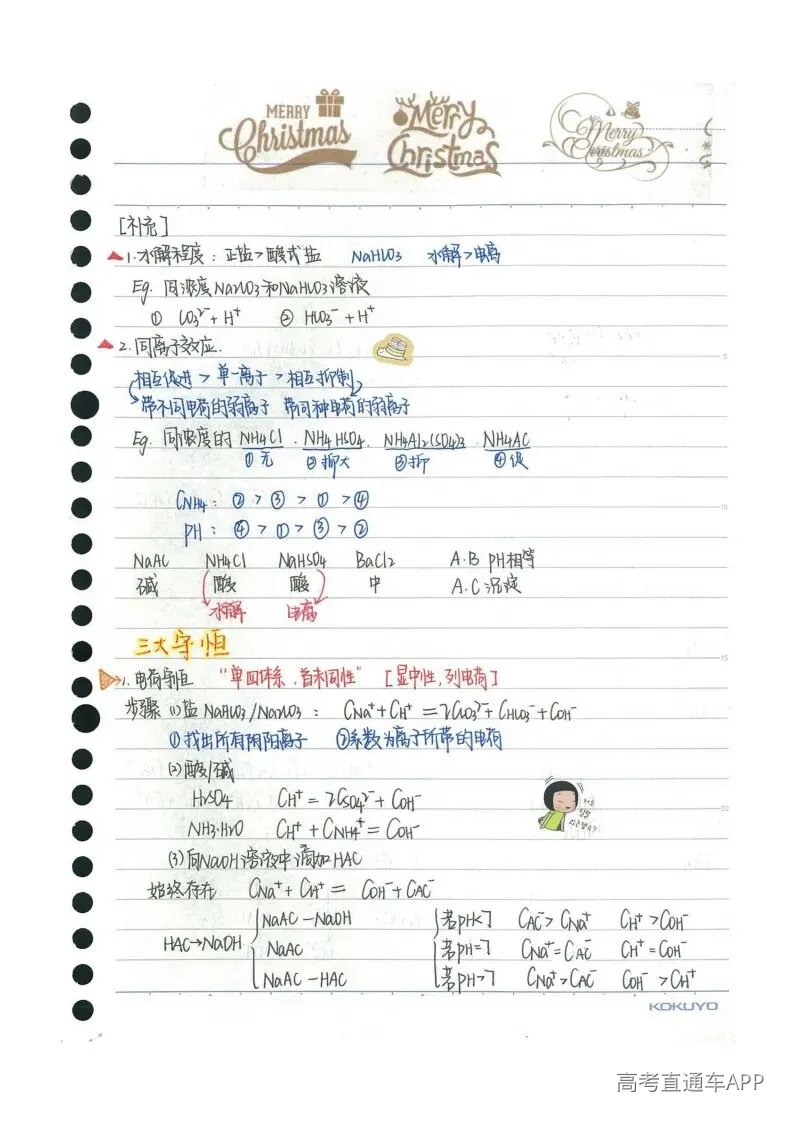 MERRY Christmas
Merry Christmas
Merry Christmas
[补充]
1. 水解程度：正盐>酸式盐 NaHCO3 水解>电离
Eg. 同浓度Na2CO3和NaHCO3溶液
① CO3²⁻+H⁺ ② HCO3⁻+H⁺
2. 同离子效应.
相互促进 > 单一离子 > 相互抑制
带不同电荷的弱离子 带同种电荷的弱离子
Eg. 同浓度的 NH4Cl . NH4HSO4. NH4Al2(SO4)3 . NH4AC
①无 ②抑大 ③抑 ④促
CNH4： ② > ③ > ① > ④
PH： ④ > ① > ③ > ②
NaAC NH4Cl NaHSO4 BaCl2 A.B PH相等
碱 酸 酸 中 A.C 沉淀
水解 电离
三大守恒
1. 电荷守恒 “单四体系.首末同性” [显中性，列电荷]
步骤 (1)盐 NaHCO3/Na2CO3： CNa⁺+CH⁺=2CCO3²⁻+CHCO3⁻+COH⁻
①找出所有阴阳离子 ②系数为离子所带的电荷
(2)酸/碱
H2SO4 CH⁺=2CSO4²⁻+COH⁻
NH3·H2O CH⁺+CNH4⁺=COH⁻
(3)向NaOH溶液中滴加HAC
始终存在 CNa⁺+CH⁺= COH⁻+CAC⁻
NaAC-NaOH 若pH<7 CAC⁻>CNa⁺ CH⁺>COH⁻
HAC→NaOH NaAC 若pH=7 CNa⁺=CAC⁻ CH⁺=COH⁻
NaAC-HAC 若pH>7 CNa⁺>CAC⁻ COH⁻>CH⁺
5
10
15
20
KOKUYO
高考直通车APP